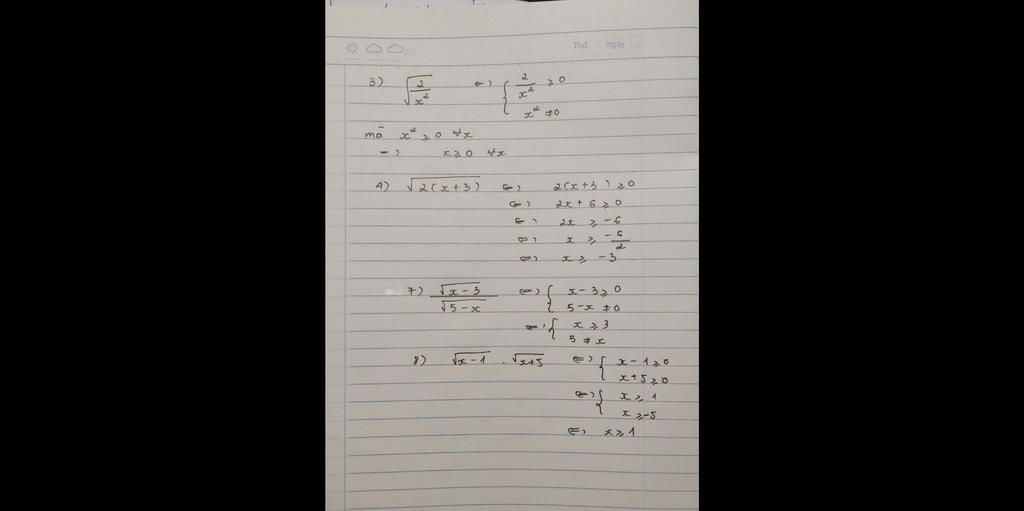 Thứ ngày
3) √(2/x²) <=> { 2/x² ≥ 0
x² ≠ 0
mà x² ≥ 0 ∀x
=> x ≥ 0 ∀x
4) √(2(x+3)) <=> 2(x+3) ≥ 0
<=> 2x + 6 ≥ 0
<=> 2x ≥ -6
<=> x ≥ -6/2
<=> x ≥ -3
7) √(x-3)/√(5-x) <=> { x-3 ≥ 0
5-x ≠ 0
<=> { x ≥ 3
5 ≠ x
8) √(x-1) . √(x+5) <=> { x-1 ≥ 0
x+5 ≥ 0
<=> { x ≥ 1
x ≥ -5
<=> x ≥ 1